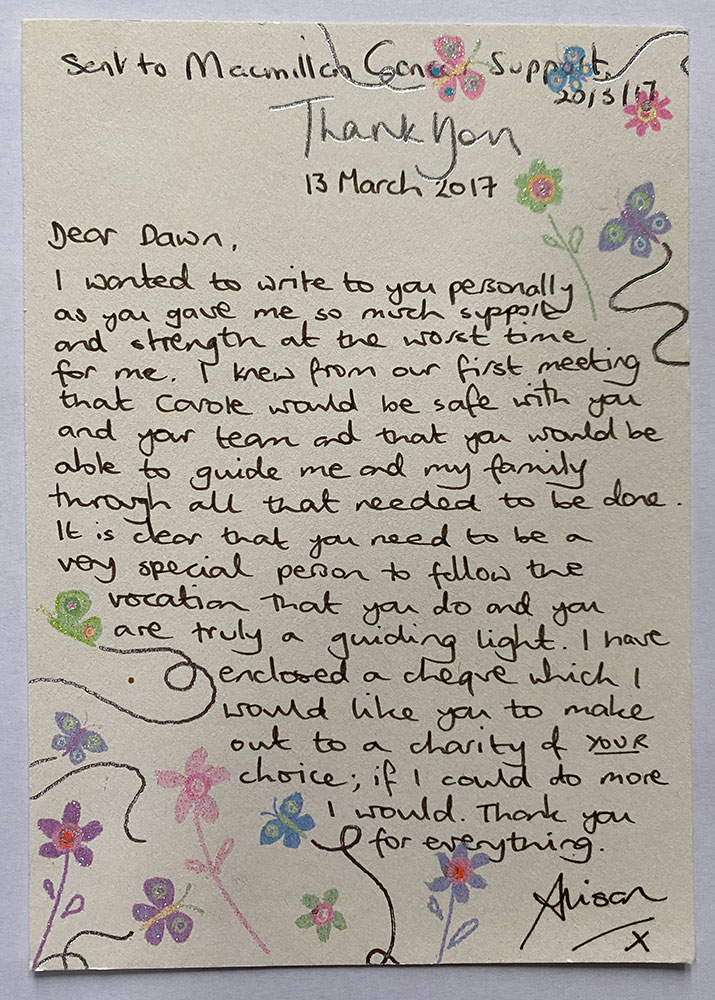 Sent to Macmillan Cancer Support
20/3/17
Thank You
13 March 2017
Dear Dawn,
I wanted to write to you personally
as you gave me so much support
and strength at the worst time
for me. I knew from our first meeting
that Carole would be safe with you
and your team and that you would be
able to guide me and my family
through all that needed to be done.
It is clear that you need to be a
very special person to follow the
vocation that you do and you
are truly a guiding light. I have
enclosed a cheque which I
would like you to make
out to a charity of YOUR
choice; if I could do more
I would. Thank you
for everything.
Alison
x